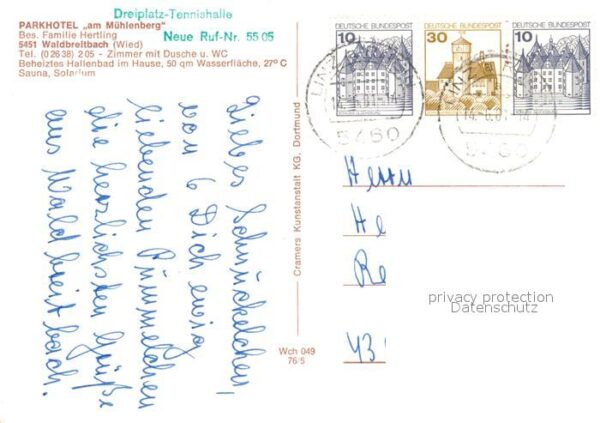 Dreiplatz-Tennishalle
PARKHOTEL „am Mühlenberg"
Bes. Familie Hertling
Neue Ruf-Nr. 55 05
5451 Waldbreitbach (Wied)
Tel. (0 26 38) 2 05 - Zimmer mit Dusche u. WC
Beheiztes Hallenbad im Hause, 50 qm Wasserfläche, 27° C
Sauna, Solarium
Liebes Schnückelchen!
von 6 Dich ewig
liebenden Pümmelchen
die herzlichsten Grüße
aus Waldbreitbach.
Cramers Kunstanstalt KG, Dortmund
Wch 049
76/5
DEUTSCHE BUNDESPOST
10
DEUTSCHE BUNDESPOST
30
DEUTSCHE BUNDESPOST
10
LINZ
5460
LINZ
Herrn
He
Re
43
privacy protection
Datenschutz